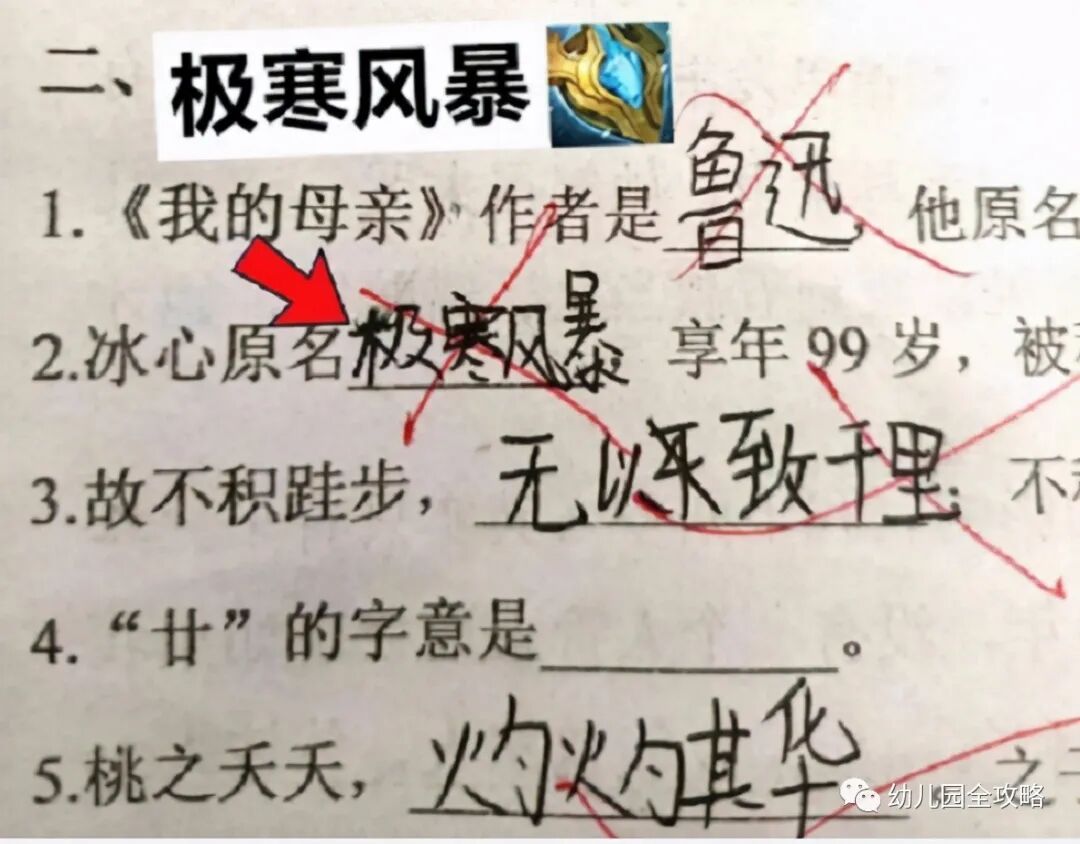 二、极寒风暴
1.《我的母亲》作者是鲁迅，他原名
2.冰心原名极寒风暴 享年99岁，被
3.故不积跬步，无以来致千里；不
4.“廿”的字意是________。
5.桃之夭夭，灼灼其华，之
幼儿园全攻略